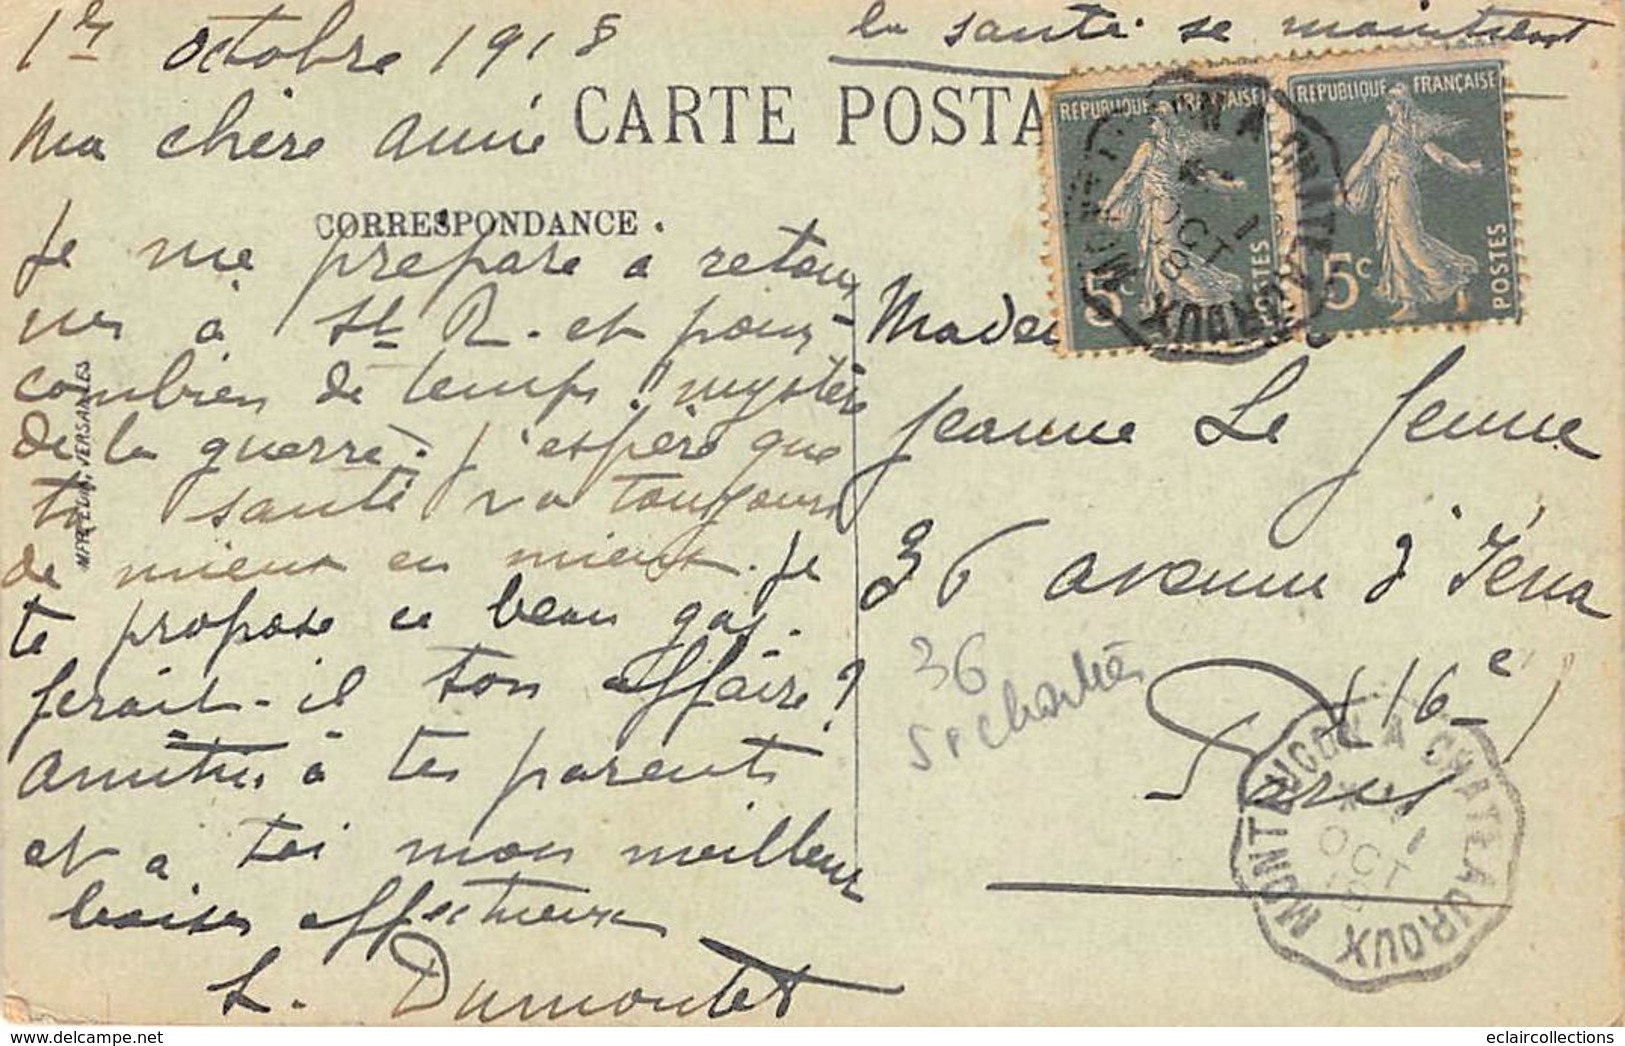 1er octobre 1918
la santé se maintient
CARTE POSTA
Ma chère amie
CORRESPONDANCE.
Je me prépare à retour
ner à St R. et pour
combien de temps. mystère
de la guerre. J'espère que
ta santé va toujours
de mieux en mieux. Je
te propose ce beau gas.
ferait-il ton affaire?
Amitiés à tes parents
et a toi mon meilleur
baiser affectueux
L. Dumontet
VERSAILLES
REPUBLIQUE FRANÇAISE
5c
POSTES
REPUBLIQUE FRANÇAISE
5c
POSTES
OCT
CHATEAUROUX
Jeanne Le Jeune
36 avenue d'Iéna
(16e)
Paris
36
MONTLUCON A CHATEAUROUX
1
OCT
18
www.delcampe.net
eclaircollections